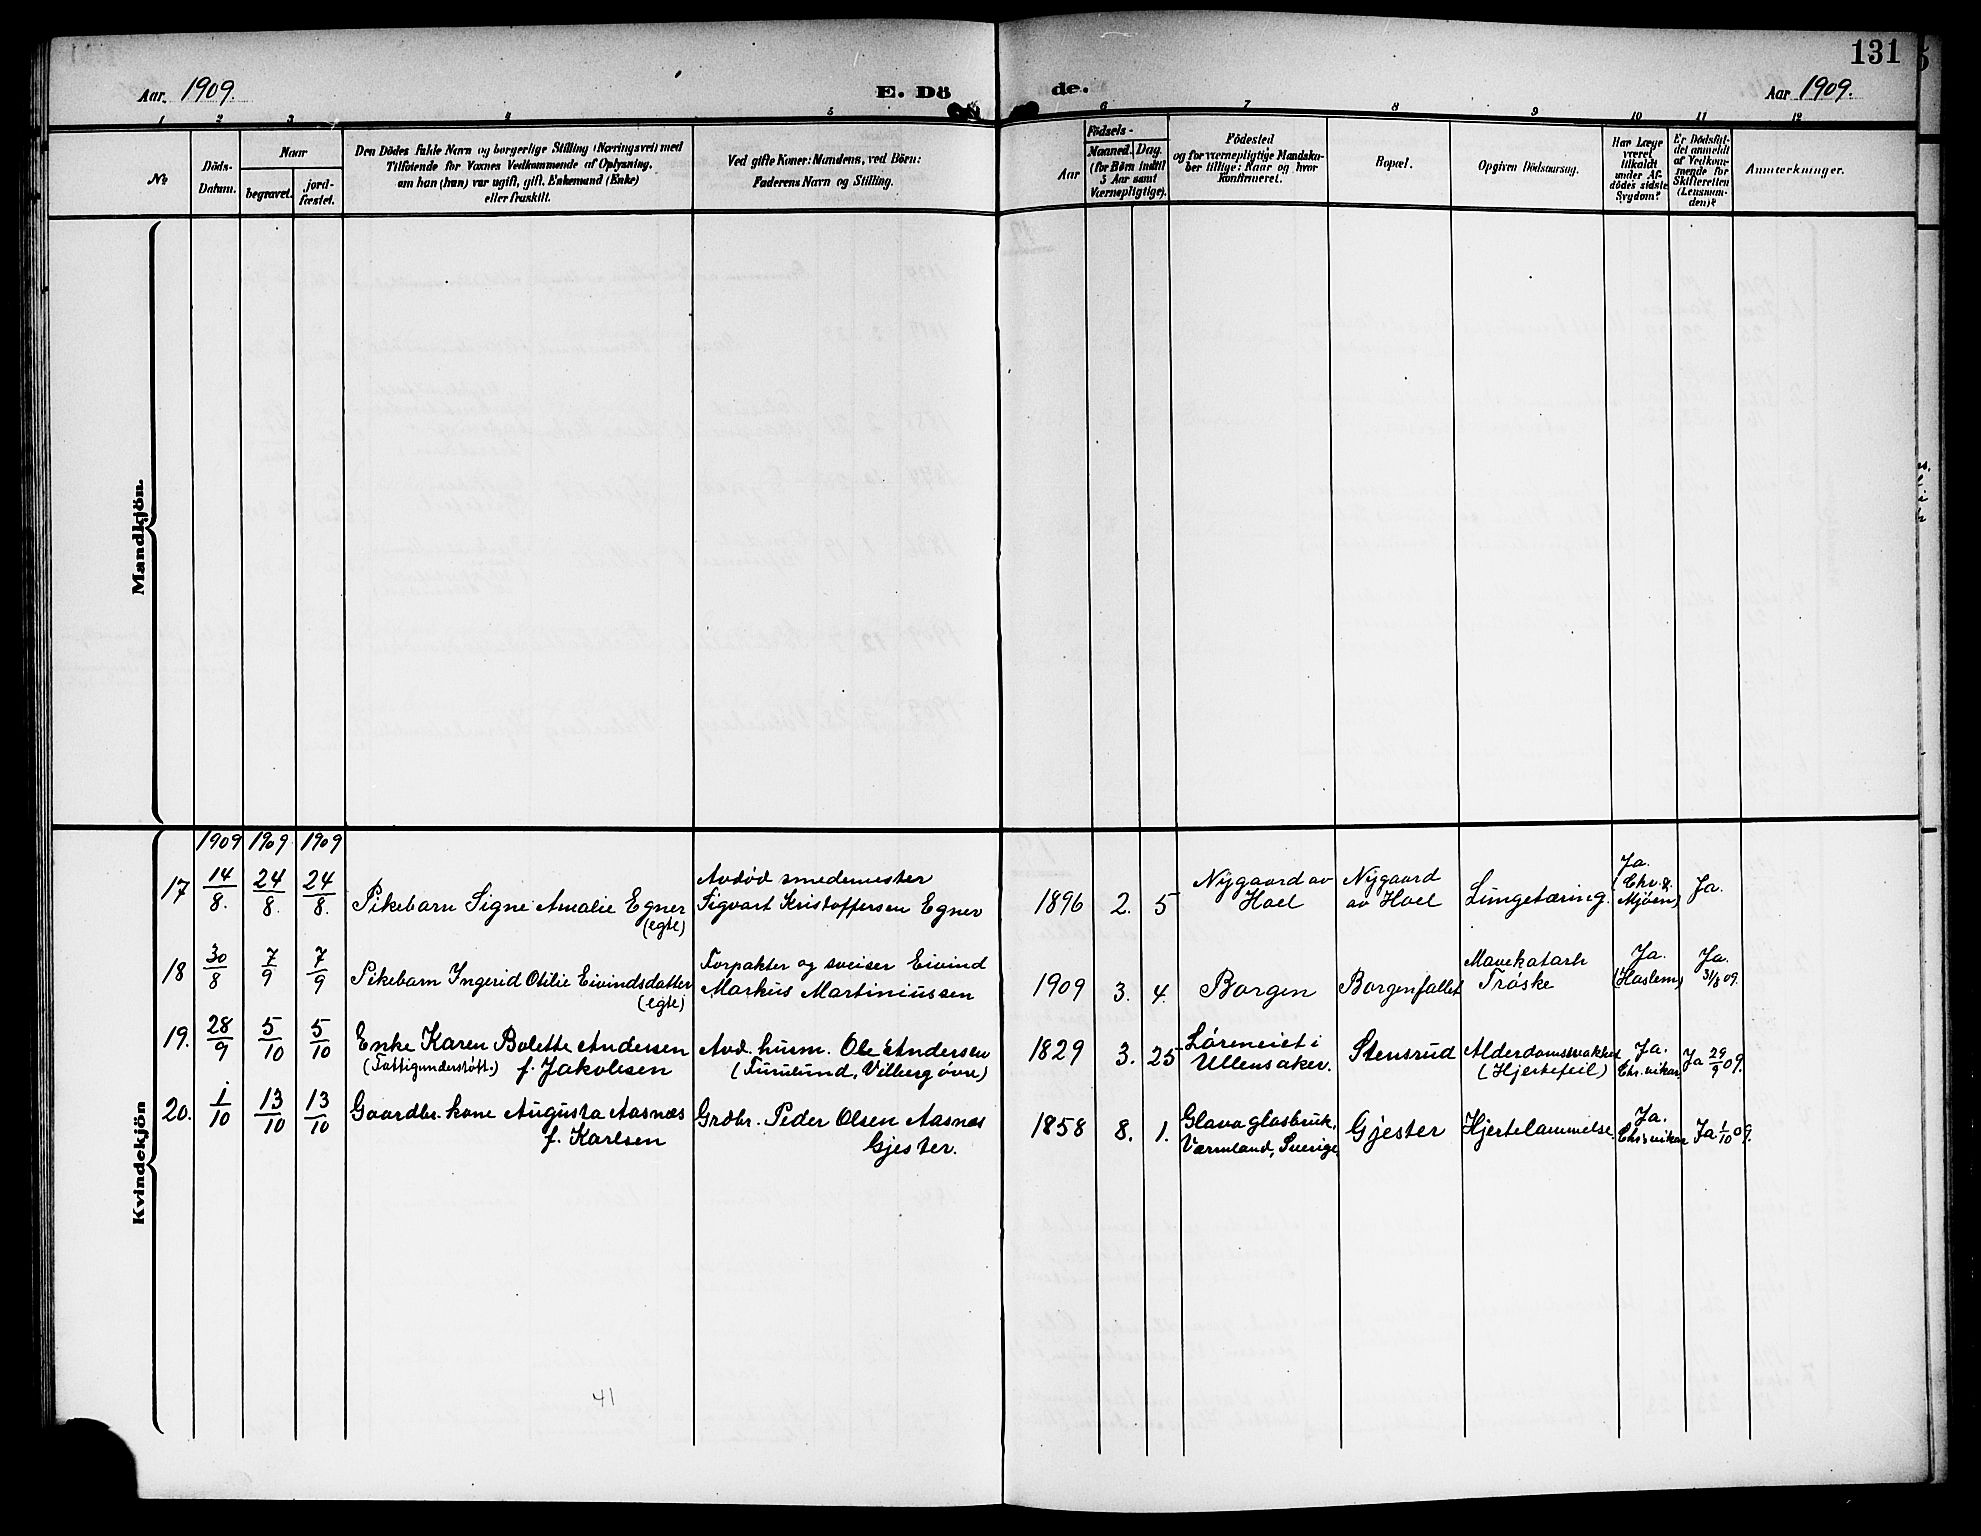 131
Aar 1909.
E. Dö
de.
Aar 1909.
1 2 3 4 5 6 7 8 9 10 11 12
No
Döds-
Datum.
Naar
begravet.
jord-
fæstet.
Den Dödes fulde Navn og borgerlige Stilling (Næringsvei) med
Tilföiende for Voxnes Vedkommende af Oplysning,
om han (hun) var ugift, gift, Enkemand (Enke)
eller fraskilt.
Ved gifte Koner: Mandens, ved Börn:
Faderens Navn og Stilling.
Födsels-
Aar
Maaned. Dag.
(for Börn indtil
5 Aar samt
Værnepligtige).
Födested
og for værnepligtige Mandska-
ber tillige: Naar og hvor
Konfirmeret.
Bopæl.
Opgiven Dödsaarsag.
Har Læge
været
tilkaldt
under Af-
dödes sidste
Sygdom?
Er Dödsfal-
det anmeldt
af Vedkom-
mende for
Skifteretten
(Lensman-
den)?
Anmærkninger.
Mandkjön.
Kvindekjön
1909 1909 1909
17 14/8. 24/8. 24/8. Pikebarn Signe Amalie Egner
(egte)
Avdød smedemester
Sigvart Kristoffersen Egner
1896 2. 5
Nygaard av
Hoel
Nygaard
av Hoel
Lungetæring.
Ja.
(Chr. &
Mjöen)
Ja.
18 30/8 7/9 7/9 Pikebarn Ingerid Otilie Eivindsdatter
(egte)
Forpakter og sveiser Eivind
Markus Martiniussen
1909 3. 4.
Borgen
Borgenfallet
Mavekatarh
Trøske
Ja.
(Haslem)
Ja.
31/8 09.
19. 28/9 5/10 5/10 Enke Karen Bolette Andersen
(Fattigunderstøtt.) f. Jakobsen
Avd. husm. Ole Andersen
(Furulund, Vilberg øvre)
1829 3. 25
Løreneiet i
Ullensaker.
Stensrud
Alderdomssvakhet
(Hjertefeil)
Ja.
Chr. vikar
Ja 29/9 09.
20. 1/10 13/10 13/10 Gaardbr. kone Augusta Aasnæs
f. Karlsen
Grdbr. Peder Olsen Aasnæs
Gjester.
1858 8. 1.
Glava glasbruk,
Værmland, Sverige.
Gjester
Hjertelammelse.
Ja.
Chr.s vikar
Ja 1/10 09.
41